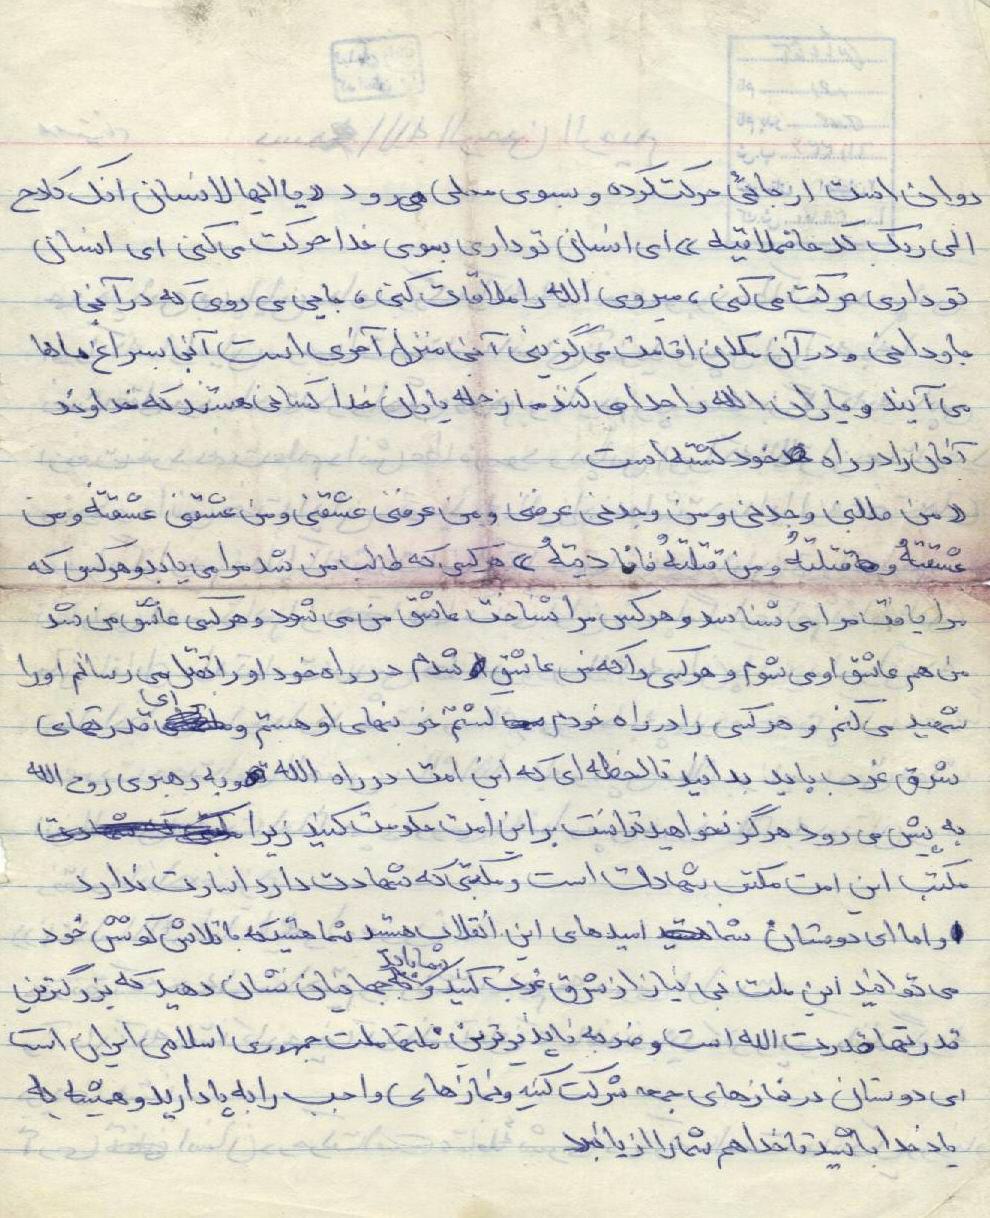 روان است از جائی حرکت کرده و بسوی محلی می رود «یا ایها لانسان انک کادح
الی ربک کدحا فملاقیه» ای انسان تو داری بسوی خدا حرکت می کنی ای انسان
تو داری حرکت می کنی ، میروی الله را ملاقات کنی ، بجایی می روی که در آنجا
جاودانی و در آن مکان اقامت می گزینی آنجا منزل آخری است آنجا بسراغ ماها
می آیند و یاران الله را جدا می کنند از جمله یاران خدا کسانی هستند که خداوند
آنان را در راه خود کشته است
«من طلبنی وجدنی و من وجدنی عرفنی و من عرفنی عشقنی و من عشقنی عشقتهُ و من
عشقتهُ و قتلتهُ و من قتلتهُ فانا دیتهُ» هر کس که طالب من شد مرا می یابد و هر کس که
مرا یافت مرا می شناسد و هر کس مرا شناخت عاشق من می شود و هر کسی عاشق من شد
من هم عاشق او می شوم و هر کسی را که من عاشق شدم در راه خود او را بقتل می رسانم او را
شهید می کنم و هر کسی را در راه خودم کشتم خونبهای او هستم و ای قدرتهای
شرق غرب باید بدانید تا لحظه ای که این امت در راه الله و به رهبری روح الله
به پیش می رود هرگز نخواهید توانست بر این امت حکومت کنید زیرا
مکتب این امت مکتب شهادت است و مکتبی که شهادت دارد اسارت ندارد
و اما ای دوستان شما امیدهای این انقلاب هستید شما هستید که با تلاش کوشش خود
می توانید این ملت بی نیاز از شرق غرب کنید و شما باید به جهانیان نشان دهید که بزرگترین
قدرتها قدرت الله است و ضربه ناپذیرترین ملتها ملت جمهوری اسلامی ایران است
ای دوستان در نمازهای جمعه شرکت کنید و نمازهای واجب را به پا دارید و همیشه به
یاد خدا باشید تا خدا هم شما را از یاد نبرد